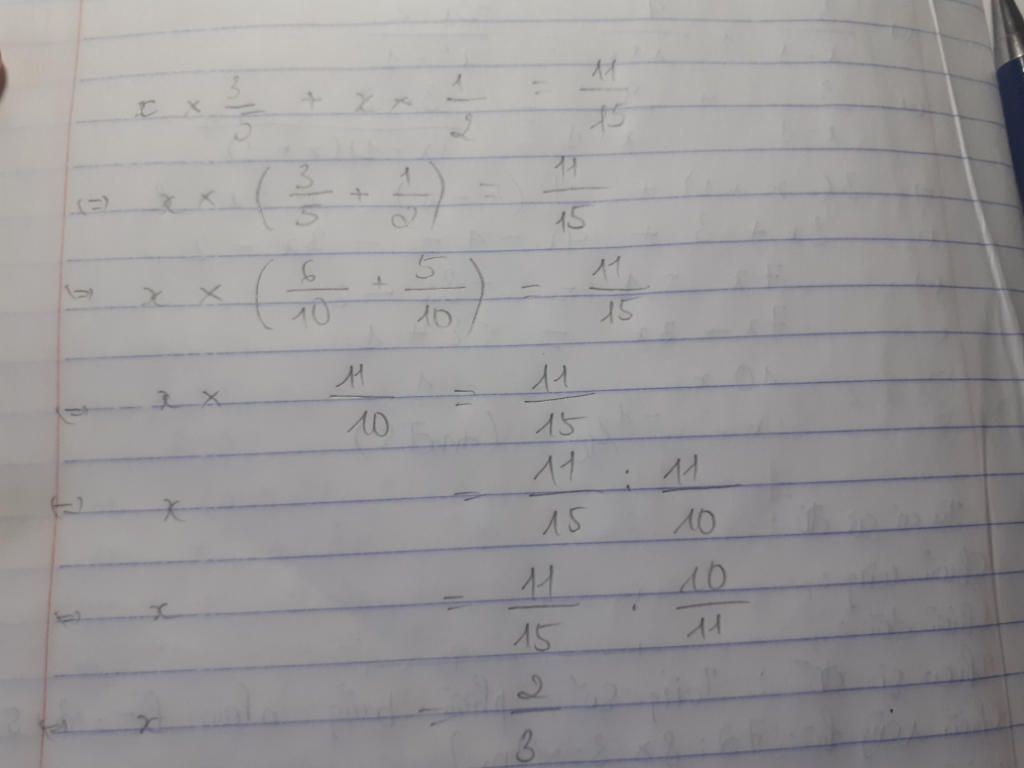 x × 3/5 + x × 1/2 = 11/15
⇔ x × (3/5 + 1/2) = 11/15
⇔ x × (6/10 + 5/10) = 11/15
⇔ x × 11/10 = 11/15
⇔ x = 11/15 : 11/10
⇔ x = 11/15 . 10/11
⇔ x = 2/3